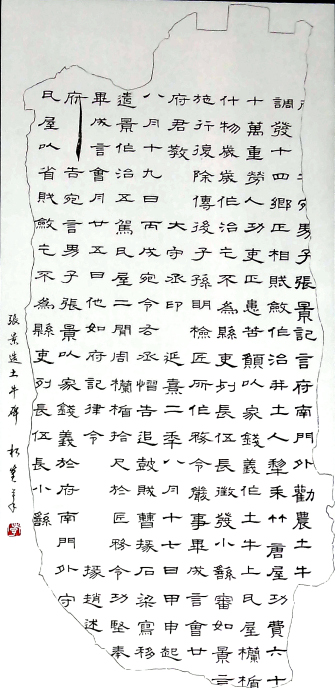 男子張景記言府南門外勸農土牛
調發十四鄉正相賦斂作治并土人犁耒艹唐屋功費六十
十萬重勞人功吏正患苦願以家錢義作土牛上瓦屋欄楯
什物歲歲作治乞不為縣吏列長伍長徵發小繇審如景言
施行復除傳後子孫明檢匠所作務令嚴事畢成言會廿
府君教 大守丞印 延熹二年八月十七日甲申起
八月十九日丙戌宛令右丞慴告追鼓賊曹掾石梁寫移
遣景作治五駕瓦屋二間周欄楯拾尺於匠務令功堅奉
畢成言會月廿五日他如府記律令 掾趙述
府 告宛言男子張景以家錢義於府南門外守
瓦屋以省賦斂乞不為縣吏列長伍長小繇
張景造土牛碑